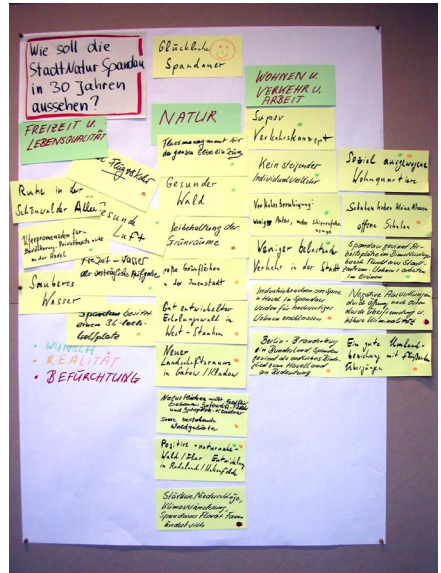 Wie soll die
StadtNatur Spandau
in 30 Jahren
aussehen?
Glückliche
Spandauer
FREIZEIT U.
LEBENSQUALITÄT
Ruhe in der
Schönwalder Allee
Gesunde
Luft
Uferpromenaden für
Bevölkerung, Privatboote nicht
in der Havel
Sauberes
Wasser
Spandau besitzt
einen 36-Loch-
Golfplatz
• WUNSCH
• REALITÄT
• BEFÜRCHTUNG
NATUR
Flussmanagement für
Gesunder
Wald
Beibehaltung der
Grünräume
große Grünflächen
in der Innenstadt
Gut entwickelter
Erholungswald in
West-Staaken
Neuer
Landschaftsraum
in Gatow/Kladow
sowie bestehende
Waldgebiete
Positive naturnahe
Wald/Flur Entwicklung
in Ruhland/Hakenfelde
Stärkere Niederschläge,
Klimaveränderung,
Spandaus Flora + Fauna
ändert sich
WOHNEN U.
VERKEHR U.
ARBEIT
Super
Verkehrskonzept
Kein steigender
Individualverkehr
Verkehrsberuhigung:
Weniger belastender
Verkehr in der Stadt
Industriebrachen an Spree
+ Havel in Spandau
werden für hochwertiges
Wohnen erschlossen
Berlin-Brandenburg
ein Bundesland, Spandau
gewinnt als
an Bedeutung
Sozial ausgewogene
Wohnquartiere
Schulen haben kleine Klassen
offene Schulen
Spandau gewinnt Ar-
beitsplätze im Dienstleistungs-
im Grünen
Negative Auswirkungen
durch Öffnung nach außen
durch Überfremdung u.
höhere Kriminalität
Ein gute Umland-
beziehung mit fließenden
Übergängen